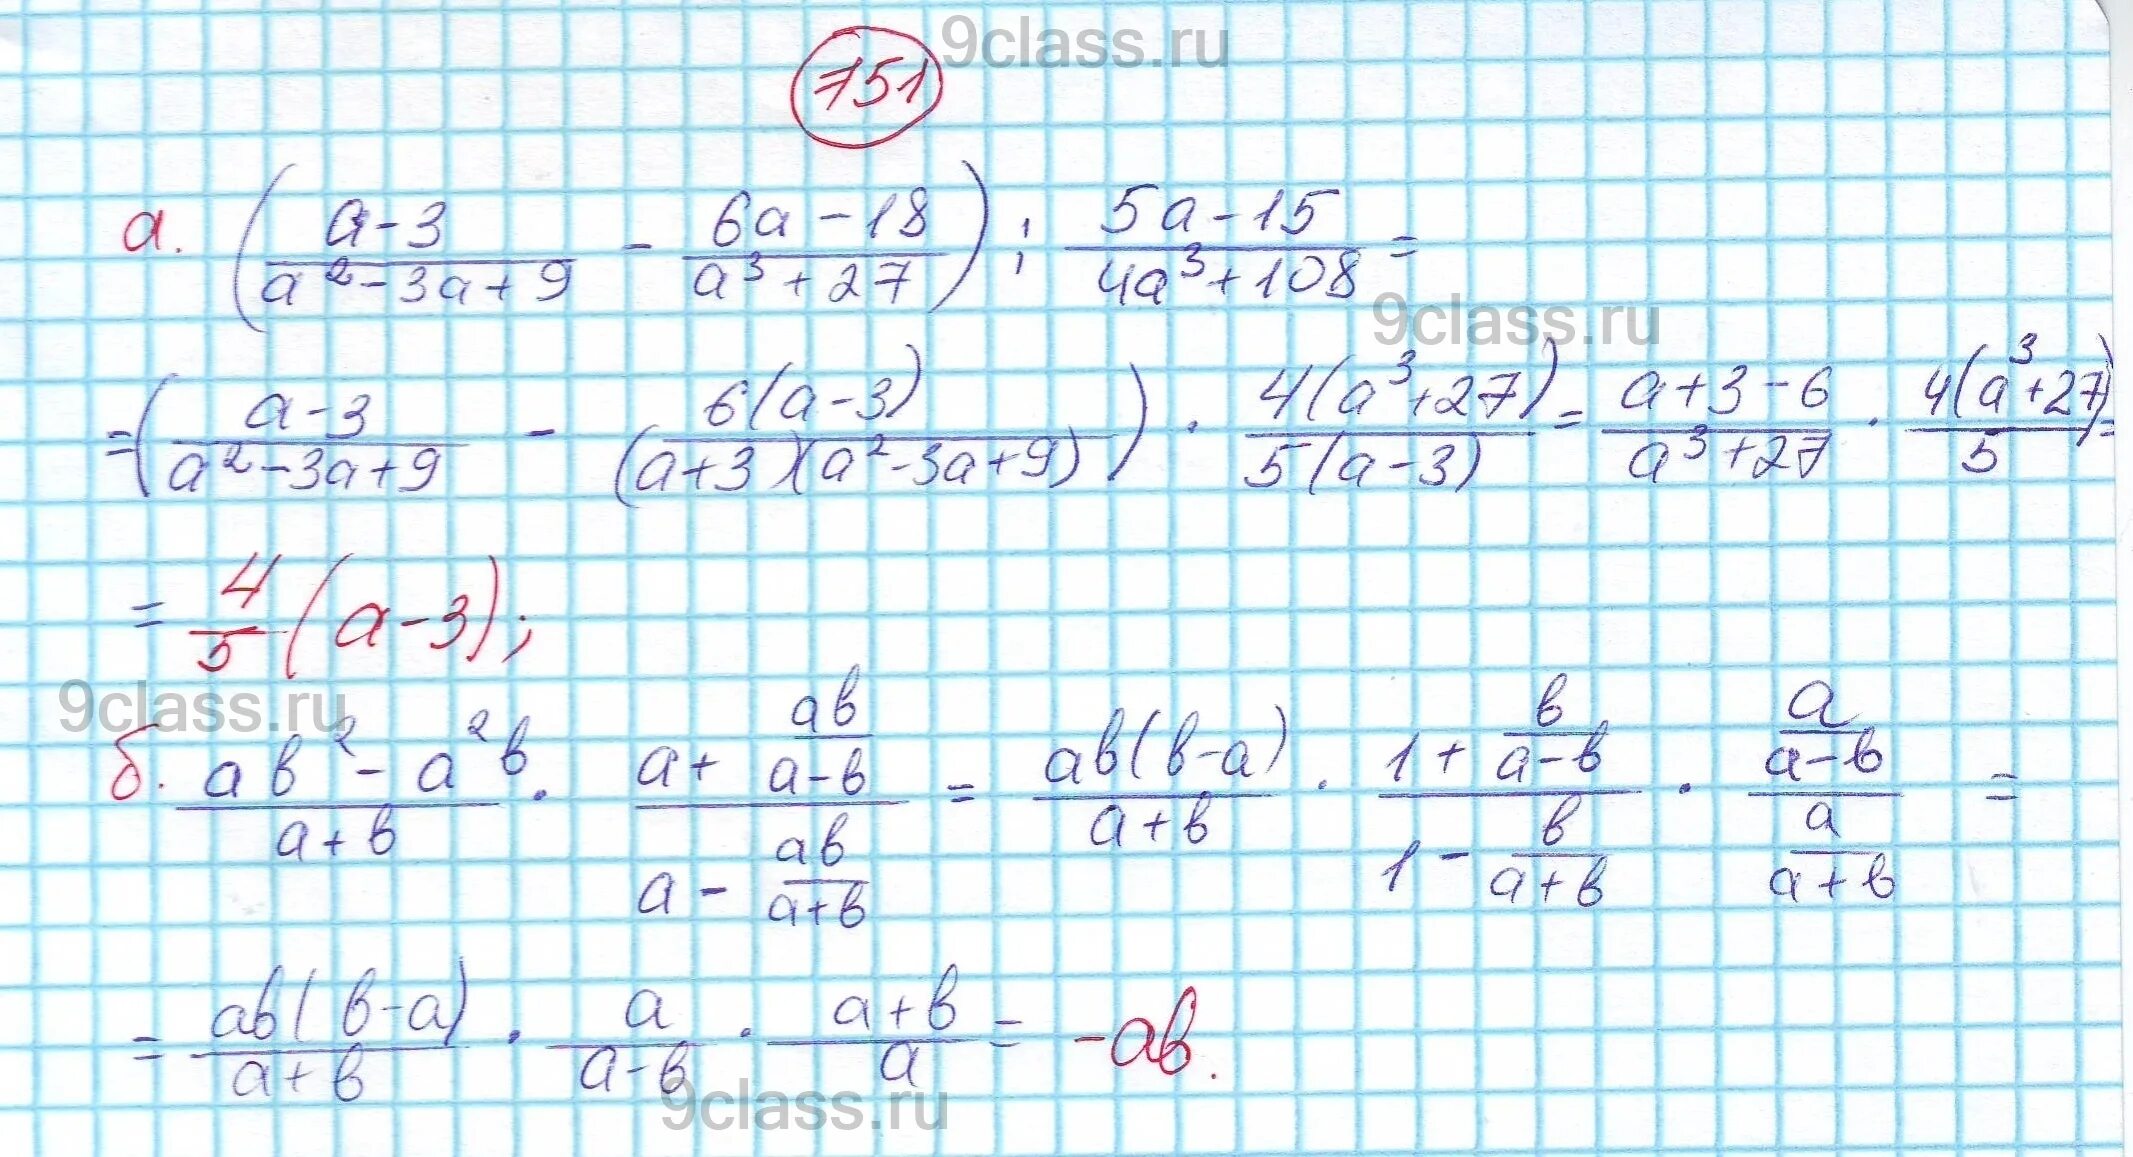 9class.ru
751
а. ((a-3)/(a²-3a+9) - (6a-18)/(a³+27)) : (5a-15)/(4a³+108) =
9class.ru
= ((a-3)/(a²-3a+9) - 6(a-3)/((a+3)(a²-3a+9))) · 4(a³+27)/(5(a-3)) = (a+3-6)/(a³+27) · 4(a³+27)/5 =
= 4/5 (a-3);
9class.ru
б. (ab²-a²b)/(a+b) · (a + ab/(a-b))/(a - ab/(a+b)) = ab(b-a)/(a+b) · (1 + b/(a-b))/(1 - b/(a+b)) · (a/(a-b))/(a/(a+b)) =
= ab(b-a)/(a+b) · a/(a-b) · (a+b)/a = -ab.
9class.ru